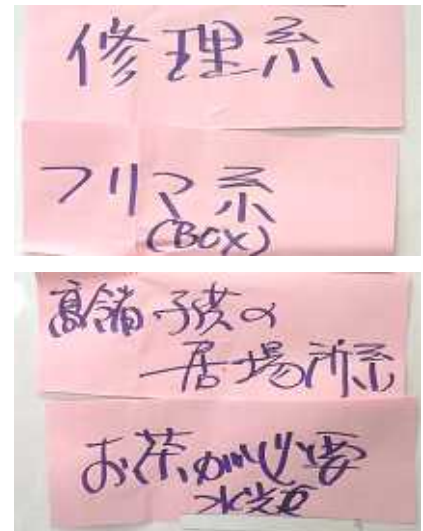 修理系
フリマ系
(BOX)
高齢者子供の
居場所系
お茶が必要